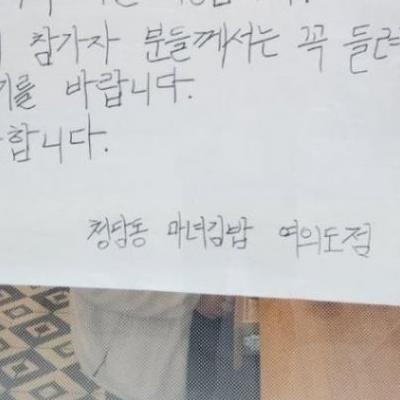 참가자 분들께서는 꼭 들려
기를 바랍니다.
합니다.
청담동 마녀김밥 여의도점